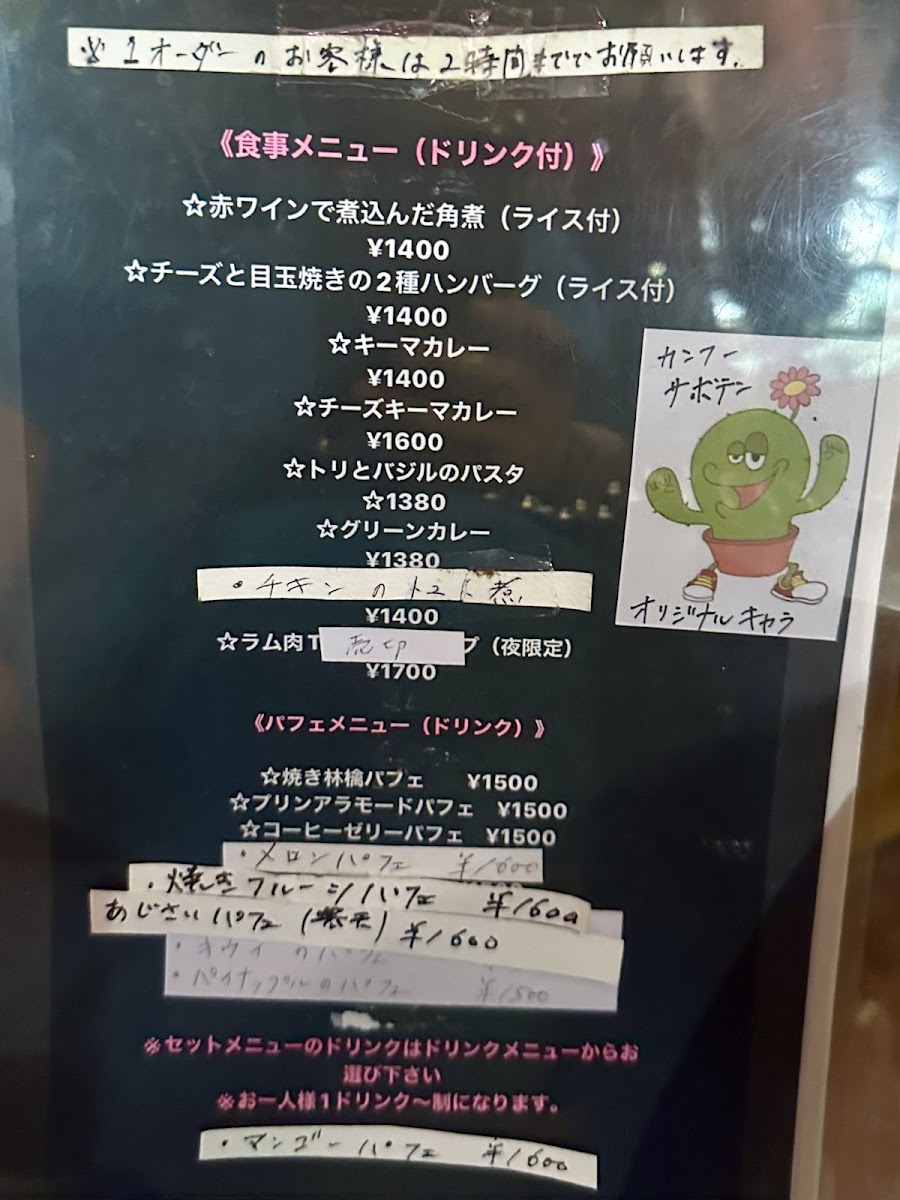 ※1オーダーのお客様は2時間まででお願いします。
《食事メニュー（ドリンク付）》
☆赤ワインで煮込んだ角煮（ライス付）
¥1400
☆チーズと目玉焼きの2種ハンバーグ（ライス付）
¥1400
☆キーマカレー
¥1400
☆チーズキーマカレー
¥1600
☆トリとバジルのパスタ
☆1380
☆グリーンカレー
¥1380
・チキンのトマト煮
¥1400
☆ラム肉T
プ（夜限定）
¥1700
カンフー
サボテン
オリジナルキャラ
《パフェメニュー（ドリンク）》
☆焼き林檎パフェ ¥1500
☆プリンアラモードパフェ ¥1500
☆コーヒーゼリーパフェ ¥1500
・メロンパフェ ¥1600
・焼きフルーツパフェ ¥1600
あじさいパフェ（寒天）¥1600
・キウイのパフェ
・パイナップルのパフェ ¥1500
※セットメニューのドリンクはドリンクメニューからお
選び下さい
※お一人様1ドリンク～制になります。
・マンゴーパフェ ¥1600